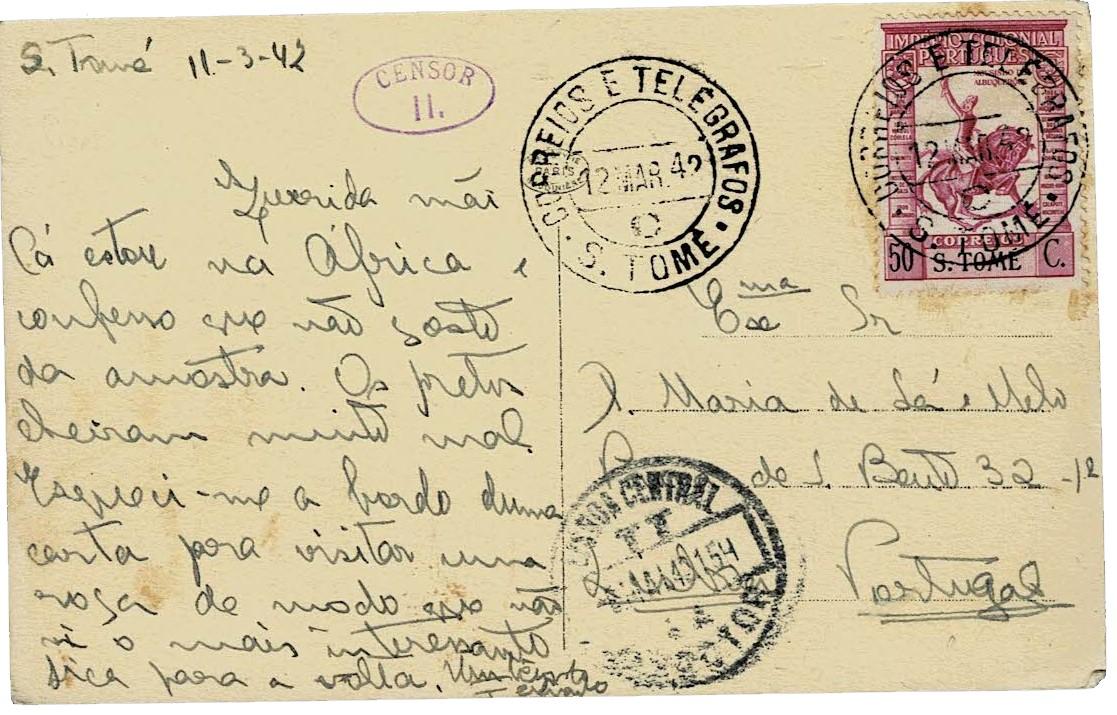 S. Tomé 11-3-42
CENSOR
11.
Querida mãi
Cá estou na África e
confesso que não gosto
da amostra. Os pretos
cheiram muito mal.
Esqueci-me a bordo duma
carta para visitar uma
roça de modo que não
vi o mais interessante
fica para a volta.
CORREIOS E TELEGRAFOS
12 MAR. 42
C
S. TOMÉ
IMPERIO COLONIAL
PORTUGUES
MOUSINHO DE
ALBUQUERQUE
CORREIO
50 S. TOMÉ C.
CORREIOS E TELEGRAFOS
12 MAR. 42
S. TOMÉ
Exma Sr
D. Maria de Sá e Melo
de S. Bento 32 - 1º
Lisboa
Portugal
LISBOA CENTRAL